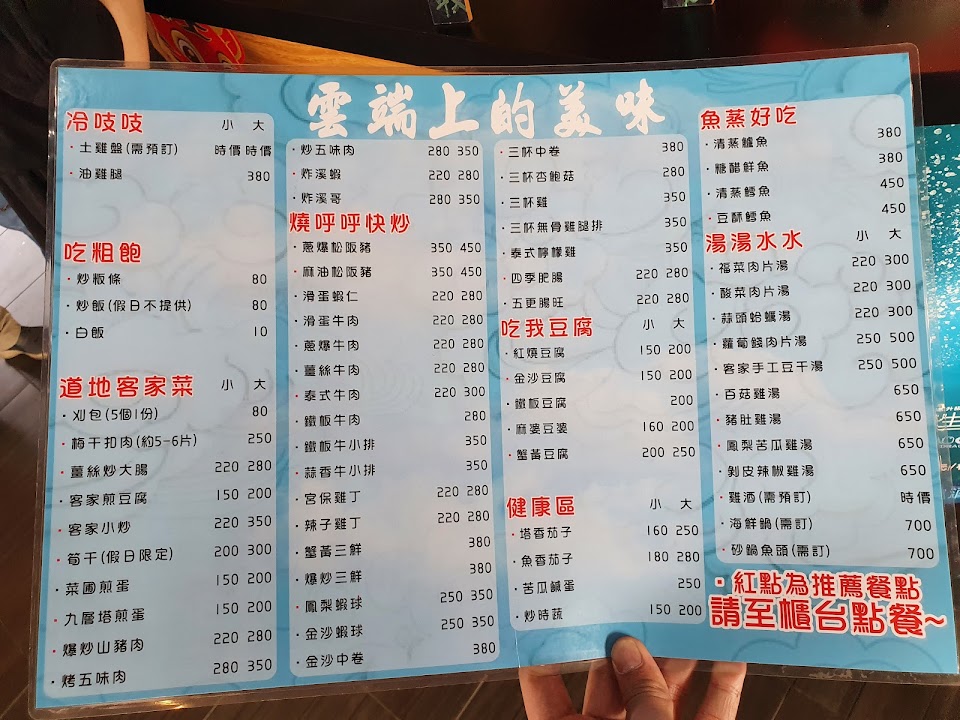 雲端上的美味
冷吱吱 小 大
·土雞盤(需預訂) 時價 時價
·油雞腿 380
吃粗飽
·炒粄條 80
·炒飯(假日不提供) 80
·白飯 10
道地客家菜 小 大
·刈包(5個1份) 80
·梅干扣肉(約5-6片) 250
·薑絲炒大腸 220 280
·客家煎豆腐 150 200
·客家小炒 220 350
·筍干(假日限定) 200 300
·菜圃煎蛋 150 200
·九層塔煎蛋 150 200
·爆炒山豬肉 220 280
·烤五味肉 280 350
·炒五味肉 280 350
·炸溪蝦 220 280
·炸溪哥 280 350
燒呼呼快炒
·蔥爆松阪豬 350 450
·麻油松阪豬 350 450
·滑蛋蝦仁 220 280
·滑蛋牛肉 220 280
·蔥爆牛肉 220 280
·薑絲牛肉 220 280
·泰式牛肉 220 300
·鐵板牛肉 280
·鐵板牛小排 350
·蒜香牛小排 350
·宮保雞丁 220 280
·辣子雞丁 220 280
·蟹黃三鮮 380
·爆炒三鮮 380
·鳳梨蝦球 250 350
·金沙蝦球 250 350
·金沙中卷 380
·三杯中卷 380
·三杯杏鮑菇 280
·三杯雞 350
·三杯無骨雞腿排 350
·泰式檸檬雞 350
·四季肥腸 220 280
·五更腸旺 220 280
吃我豆腐 小 大
·紅燒豆腐 150 200
·金沙豆腐 150 200
·鐵板豆腐 200
·麻婆豆婆 160 200
·蟹黃豆腐 200 250
健康區 小 大
·塔香茄子 160 250
·魚香茄子 180 280
·苦瓜鹹蛋 250
·炒時蔬 150 200
魚蒸好吃
·清蒸鱸魚 380
·糖醋鮮魚 380
·清蒸鱈魚 450
·豆酥鱈魚 450
湯湯水水 小 大
·福菜肉片湯 220 300
·酸菜肉片湯 220 300
·蒜頭蛤蠣湯 220 300
·蘿蔔錢肉片湯 250 500
·客家手工豆干湯 250 500
·百菇雞湯 650
·豬肚雞湯 650
·鳳梨苦瓜雞湯 650
·剝皮辣椒雞湯 650
·雞酒(需預訂) 時價
·海鮮鍋(需訂) 700
·砂鍋魚頭(需訂) 700
·紅點為推薦餐點
請至櫃台點餐~